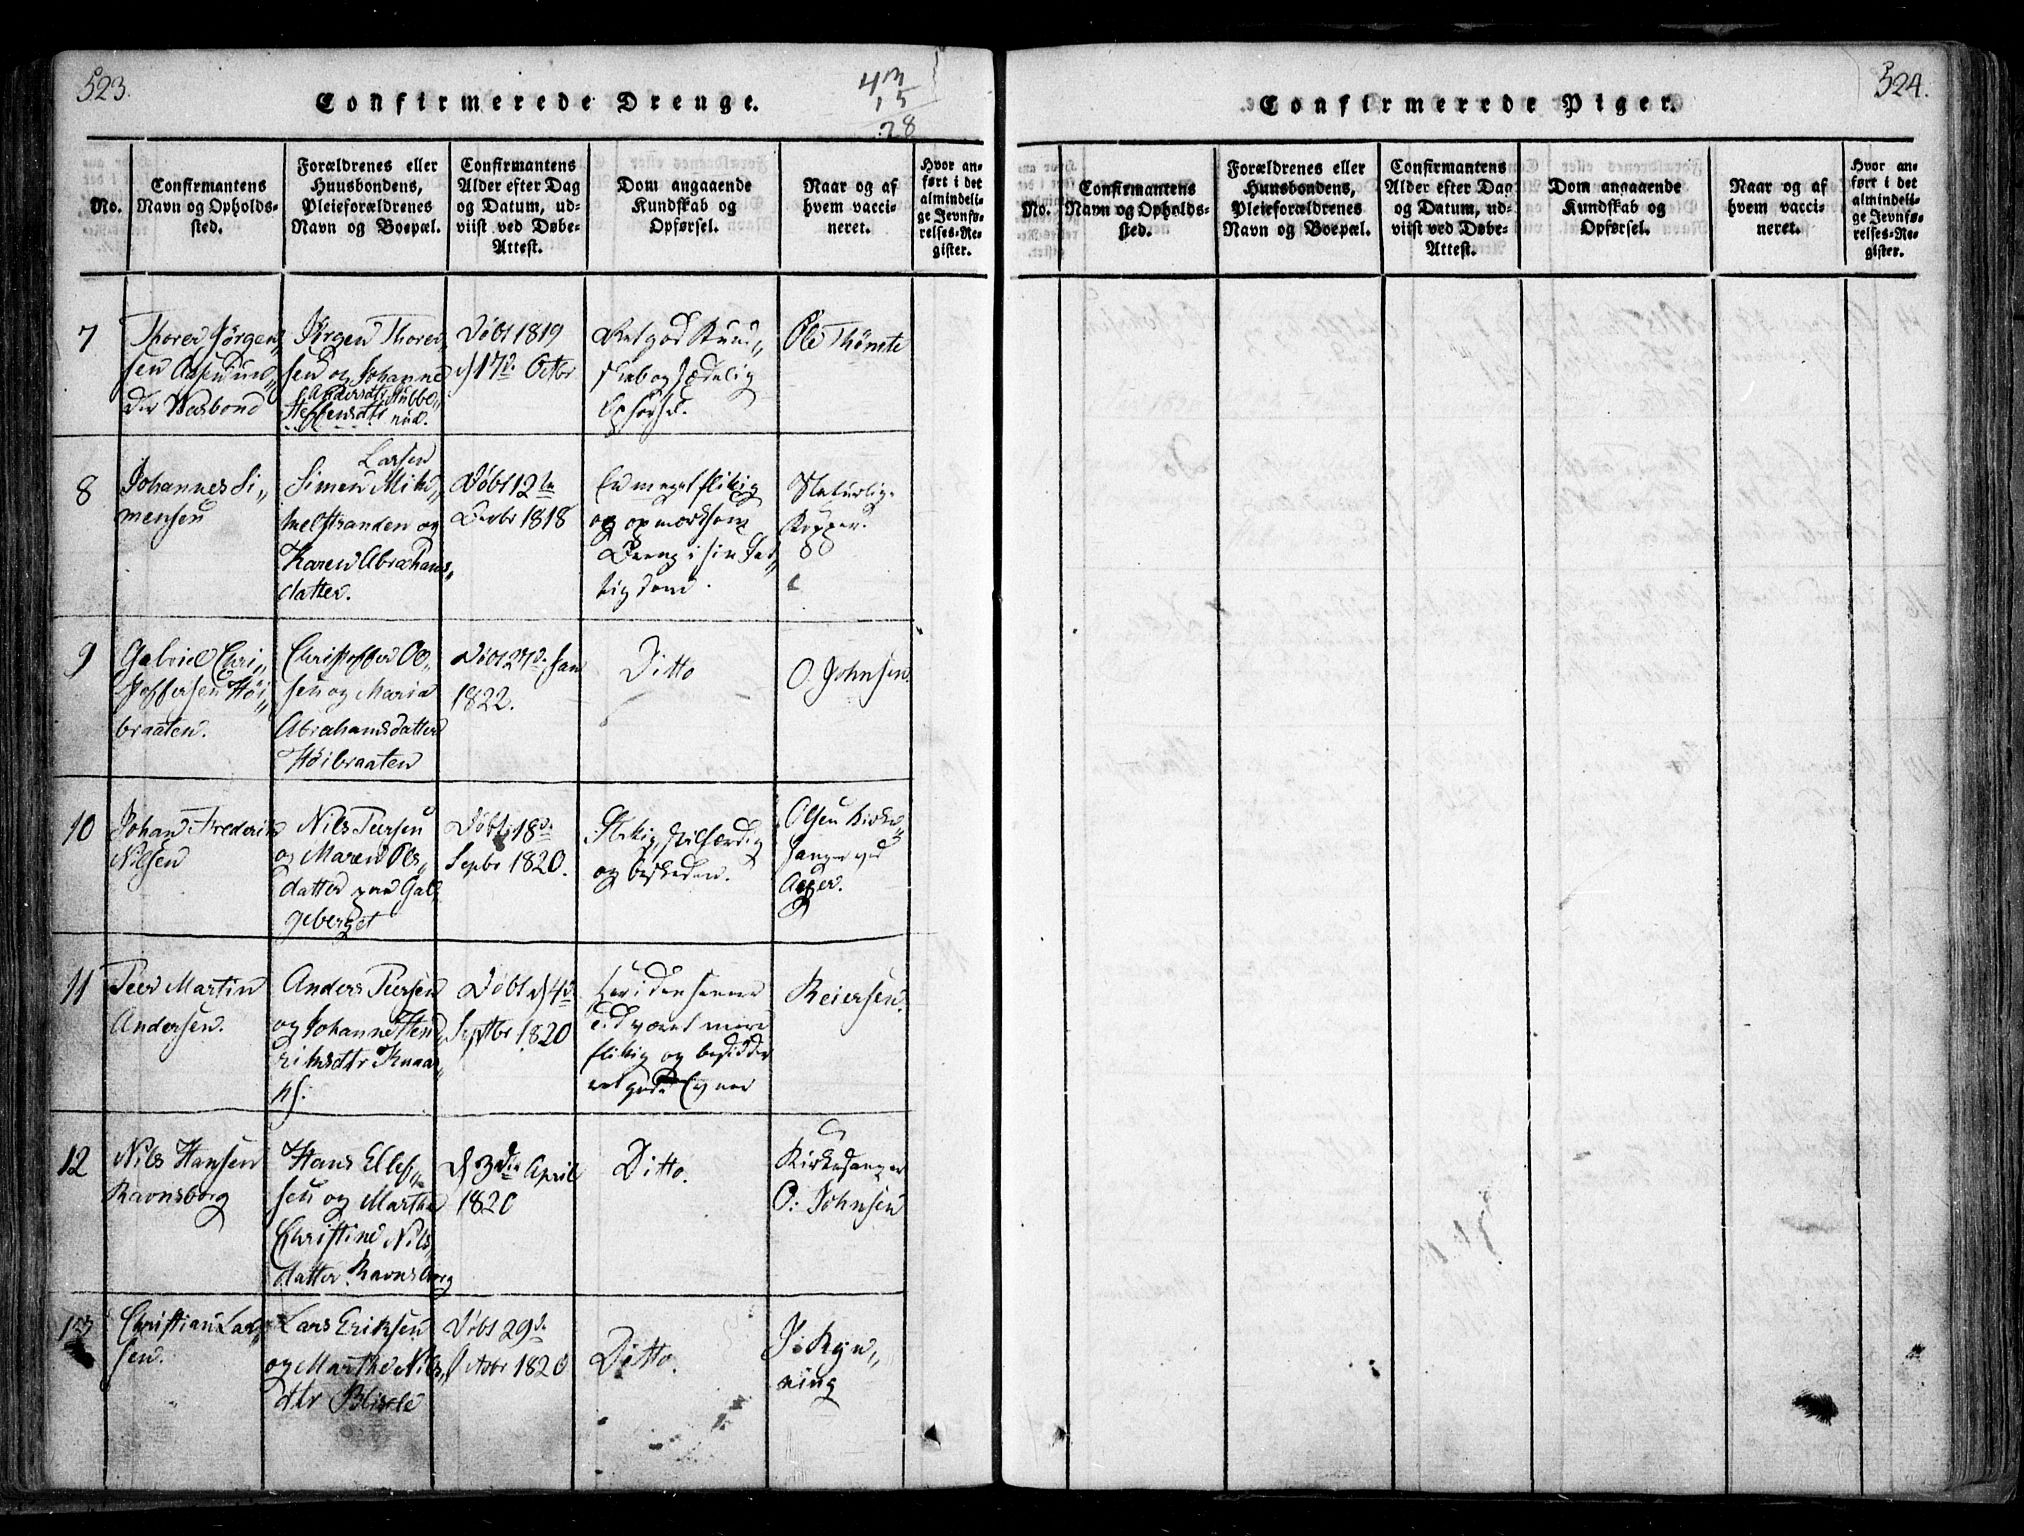 523.
Confirmerede Drenge.
43
15
28
No.
Confirmantens
Navn og Opholds-
sted.
Forældrenes eller
Huusbondens,
Pleieforældrenes
Navn og Boepæl.
Confirmantens
Alder efter Dag
og Datum, ud-
viist ved Døbe-
Attest.
Dom angaaende
Kundskab og
Opførsel.
Naar og af
hvem vacci-
neret.
Hvor an-
ført i det
almindeli-
ge Jevnfø-
relses-Re-
gister.
7
Thorer Jörgen„
sen
Jörgen Thorer„
sen og Johanne
Andersdtr Stubbe„
rud.
Döbt 1819
d 17d. Octbr
Ret god Kund„
skab og sædelig
Opförsel.
Ole Thomte
8
Johannes Si„
mensen
Larsen
Simen
og
Karen Abrahams„
datter.
Döbt 12te
Decbr 1818
En meget flittig
og opmærksom
Dreng i sin Fat„
tigdom.
Naturlige
Kopper.
9
Gabriel Chri„
stoffersen Höi„
braaten.
Christoffer Ol„
sen og Maria
Abrahamsdatter
Höibraaten
Döbt 27d. Jan
1822.
Ditto
O. Johnsen.
10
Johan Frederik
Nilsen
Nils Peersen
og Maren Ols„
datter paa Gal„
geberget
Döbt 18d.
Septbr 1820.
Flittig, stilfærdig
og beskeden.
Olsen Kirke„
sanger ved
Agger.
11
Peer Martin
Andersen.
Anders Peersen
og Johanne Hen„
riksdtr
Döbt d 4d.
Septbr 1820
Har i den senere
Tid været mere
flittig og besidder
ret gode Evner
Reiersen.
12
Nils Hansen
Ravnsborg
Hans Ellef„
sen og Marthe
Christine Nils„
datter Ravnsborg
d 3die April
1820
Ditto.
Kirkesanger
O: Johnsen
13
Christian Lar„
sen.
Lars Eriksen
og Marthe Nils„
dtr
Döbt 29d.
Octbr 1820
Ditto.
J: Ryn„
ning
524.
Confirmerede Piger.
No.
Confirmantens
Navn og Opholds-
sted.
Forældrenes eller
Huusbondens,
Pleieforældrenes
Navn og Boepæl.
Confirmantens
Alder efter Dag
og Datum, ud-
viist ved Døbe-
Attest.
Dom angaaende
Kundskab og
Opførsel.
Naar og af
hvem vacci-
neret.
Hvor an-
ført i det
almindeli-
ge Jevnfø-
relses-Re-
gister.